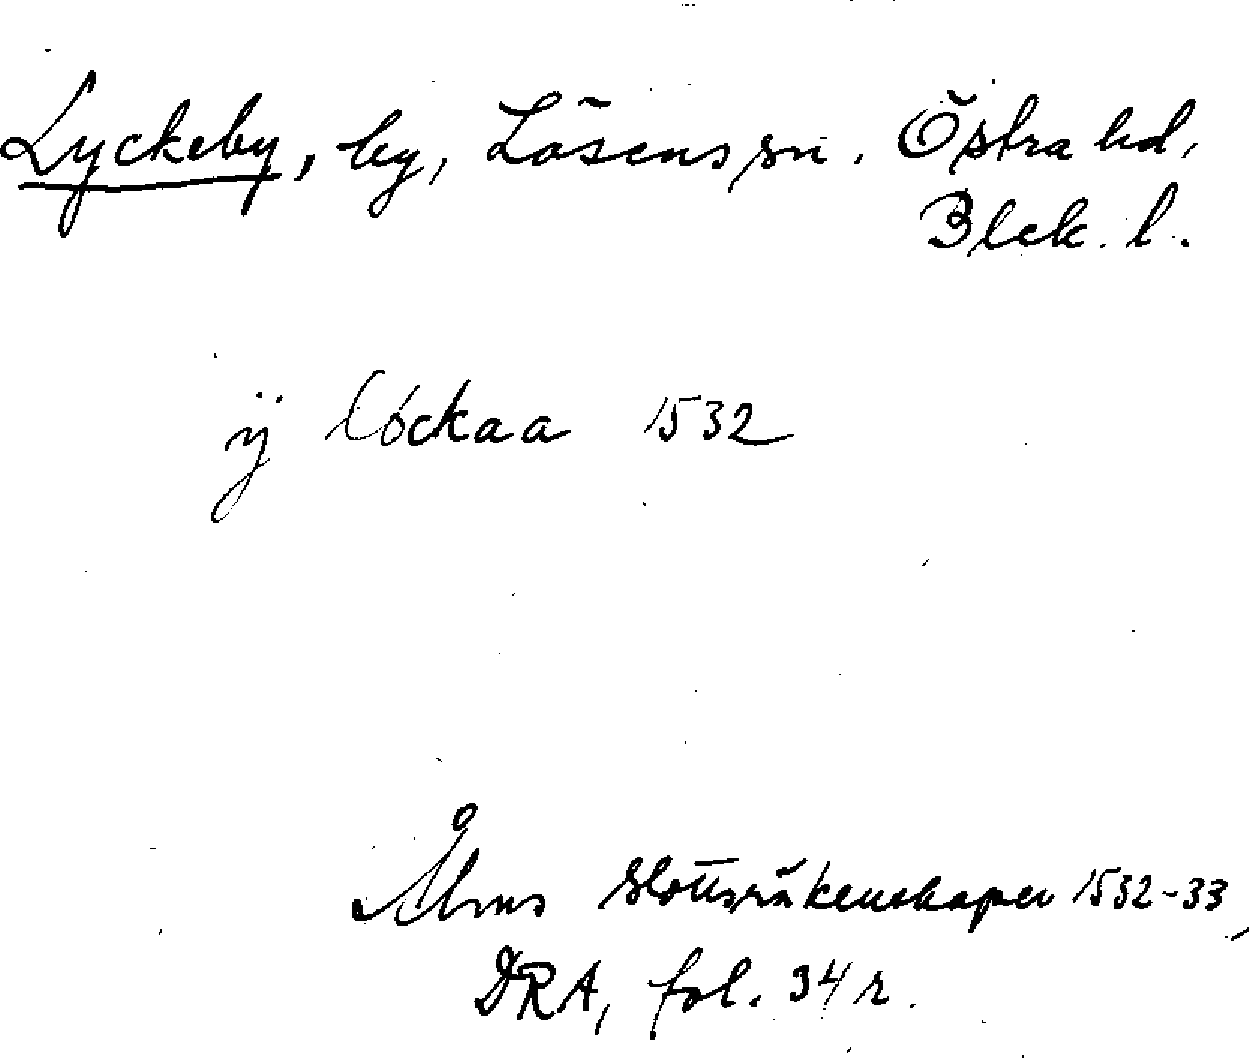 Lyckeby, by, Lösens sn. Östra hd,
Blek. l.
ÿ lóckaa 1532
Åhus Slottsräkenskaper 1532-33,
DRA, fol. 34 r.